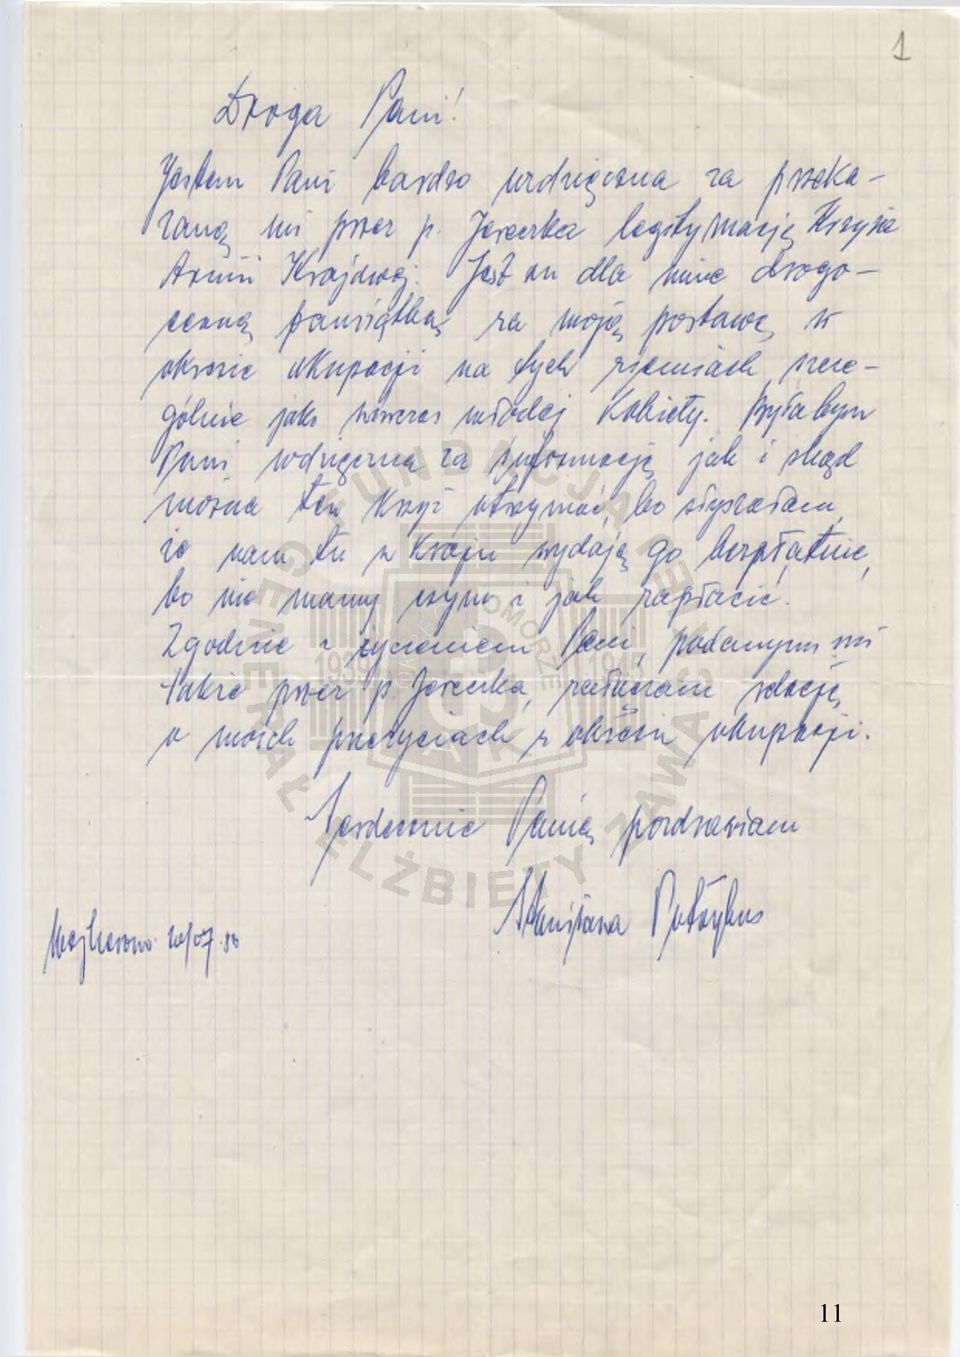 1
Droga Pani!
Jestem Pani bardzo wdzięczna za przeka-
zaną mi przez p. legitymację Krzyża
Armii Krajowej. Jest on dla mnie drogo-
cenną pamiątką za moją postawę w
okresie okupacji na tych ziemiach szcze-
gólnie jako wówczas młodej Kobiety. Byłabym
Pani wdzięczna za informację jak i skąd
można ten Krzyż otrzymać, bo słyszałam,
że nam tu w Kraju wydają go bezpłatnie,
bo nie mamy czym i jak zapłacić.
Zgodnie z życzeniem Pani, podanym mi
także przez p. załączam relację
o moich przeżyciach z okresu okupacji.
Serdecznie Panią pozdrawiam
Stanisława
Wejherowo
FUNDACJA GENERAŁ ELŻBIETY ZAWACKIEJ
POMORZE
1939
1945
11